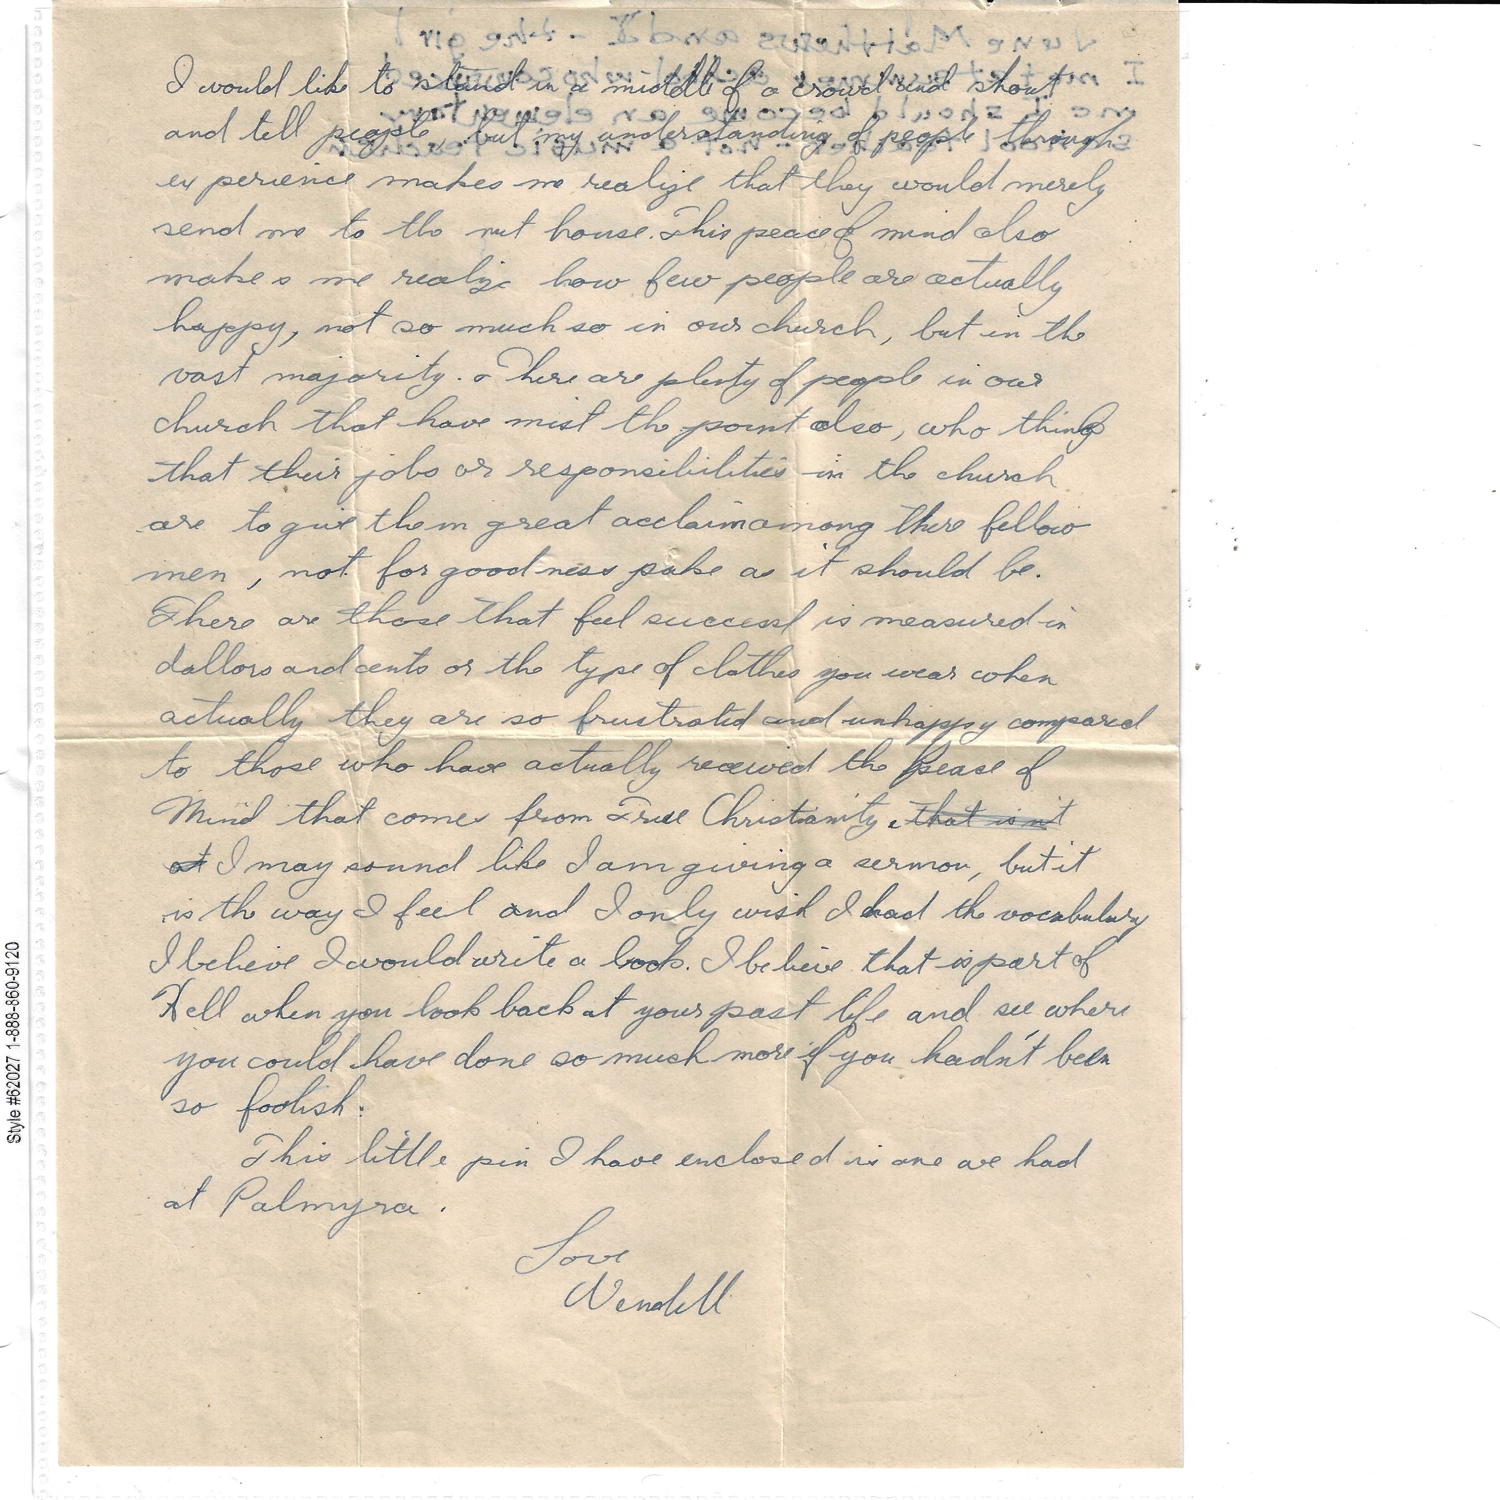 June Matthews and I - the girl
I met at summer school who convinced
me I should become an elementary
school teacher - not a music teacher
I would like to stand in a middle of a crowd and shout
and tell people, but my understanding of people through
experience makes me realize that they would merely
send me to the nut house. This peace of mind also
makes me realize how few people are actually
happy, not so much so in our church, but in the
vast majority. There are plenty of people in our
church that have mist the point also, who think
that their jobs or responsibilities in the church
are to give them great acclaim among there fellow
men, not for goodness sake as it should be.
There are those that feel success is measured in
dallors and cents or the type of clothes you wear when
actually they are so frustrated and unhappy compared
to those who have actually received the Pease of
Mind that comes from True Christianity. that is it
at I may sound like I am giving a sermon, but it
is the way I feel and I only wish I had the vocabulary
I believe I would write a book. I believe that is part of
Hell when you look back at your past life and see where
you could have done so much more if you hadn't been
so foolish.
This little pin I have enclosed is one we had
at Palmyra.
Love
Wendell
Style #62027 1-888-860-9120